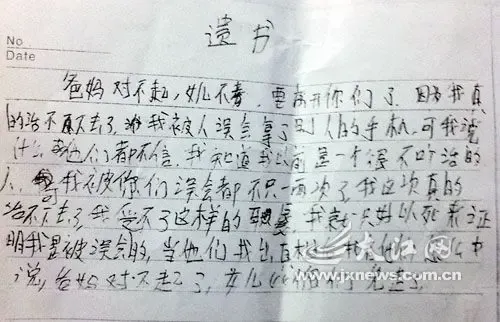 遗书
No.
Date
爸妈对不起,女儿不孝,要离开你们了.因为我真
的活不下去了,我被人误会拿了别人的手机,可我说
什么他们都不信,我知道我以前是一个很不听话的
人,我被你们误会都不只一两次了,我这次真的
活不下去了,我受不了这样的,我就只好以死来证
明我是被误会的,当他们找出
说,爸妈对不起了,女儿
大江网
www.jxnews.com.cn